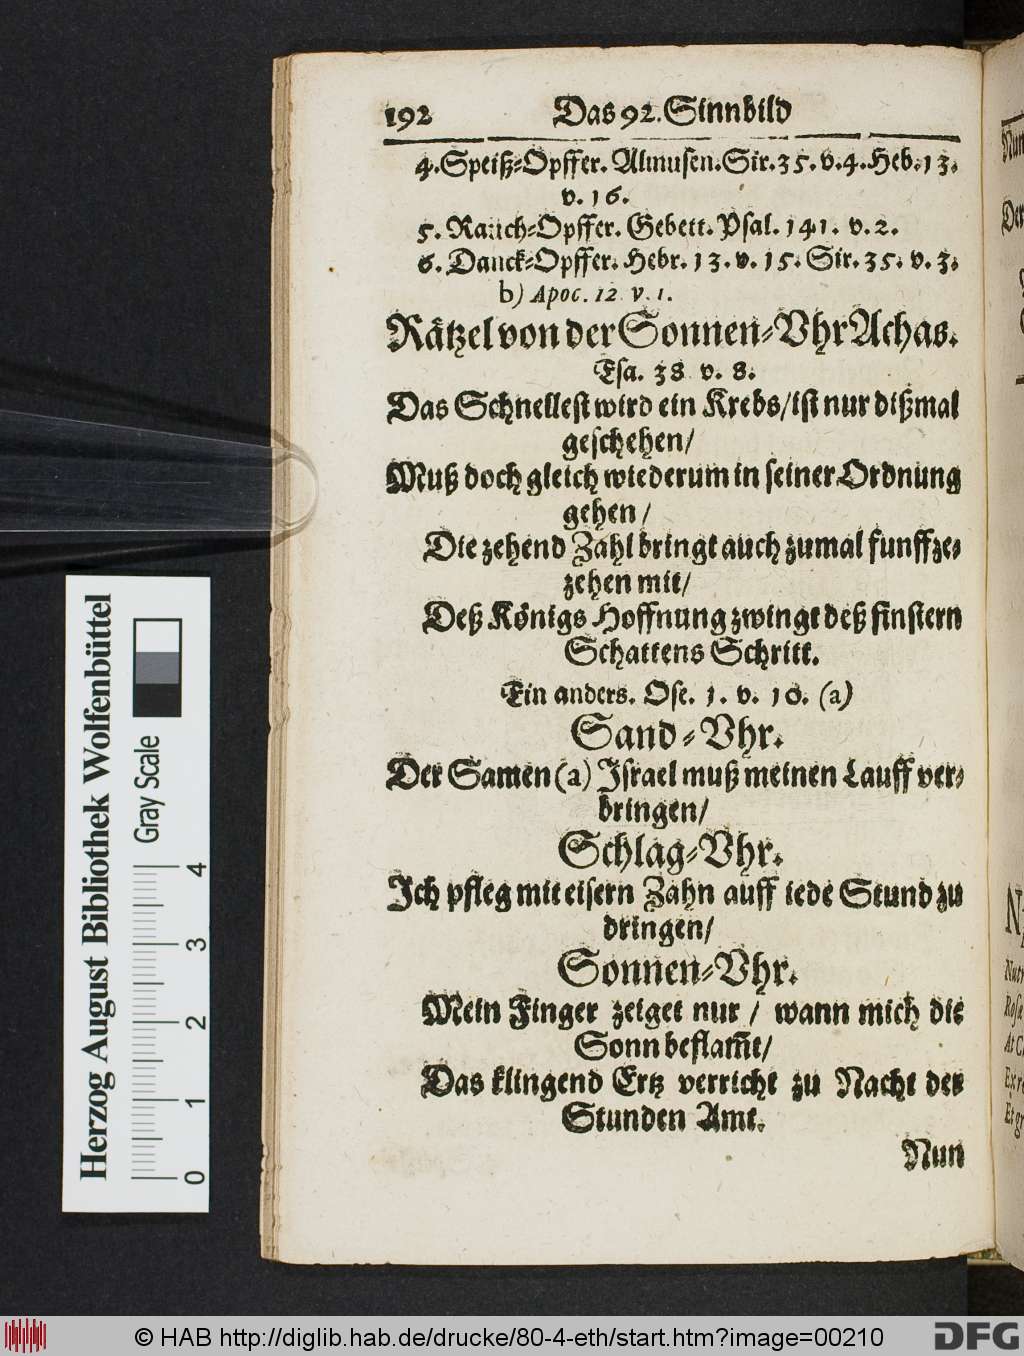 192 Das 92. Sinnbild
4. Speiß-Opffer. Almusen. Sir. 35. v. 4. Heb. 13.
v. 16.
5. Rauch-Opffer. Gebett. Psal. 141. v. 2.
6. Danck-Opffer. Hebr. 13. v. 15. Sir. 35. v. 3.
b) Apoc. 12 v. 1.
Rätzel von der Sonnen-Vhr Achas.
Esa. 38 v. 8.
Das Schnellest wird ein Krebs/ ist nur dißmal
geschehen/
Muß doch gleich wiederum in seiner Ordnung
gehen/
Die zehend Zahl bringt auch zumal funffze-
zehen mit/
Deß Königs Hoffnung zwingt deß finstern
Schattens Schritt.
Ein anders. Ose. 1. v. 10. (a)
Sand-Vhr.
Der Samen (a) Israel muß meinen Lauff ver-
bringen/
Schlag-Vhr.
Ich pfleg mit eisern Zahn auff iede Stund zu
dringen/
Sonnen-Vhr.
Mein Finger zeiget nur / wann mich die
Sonn beflam̅t/
Das klingend Ertz verricht zu Nacht der
Stunden Amt.
Nun
Herzog August Bibliothek Wolfenbüttel
Gray Scale
0 1 2 3 4
Nun
Der
© HAB http://diglib.hab.de/drucke/80-4-eth/start.htm?image=00210
DFG